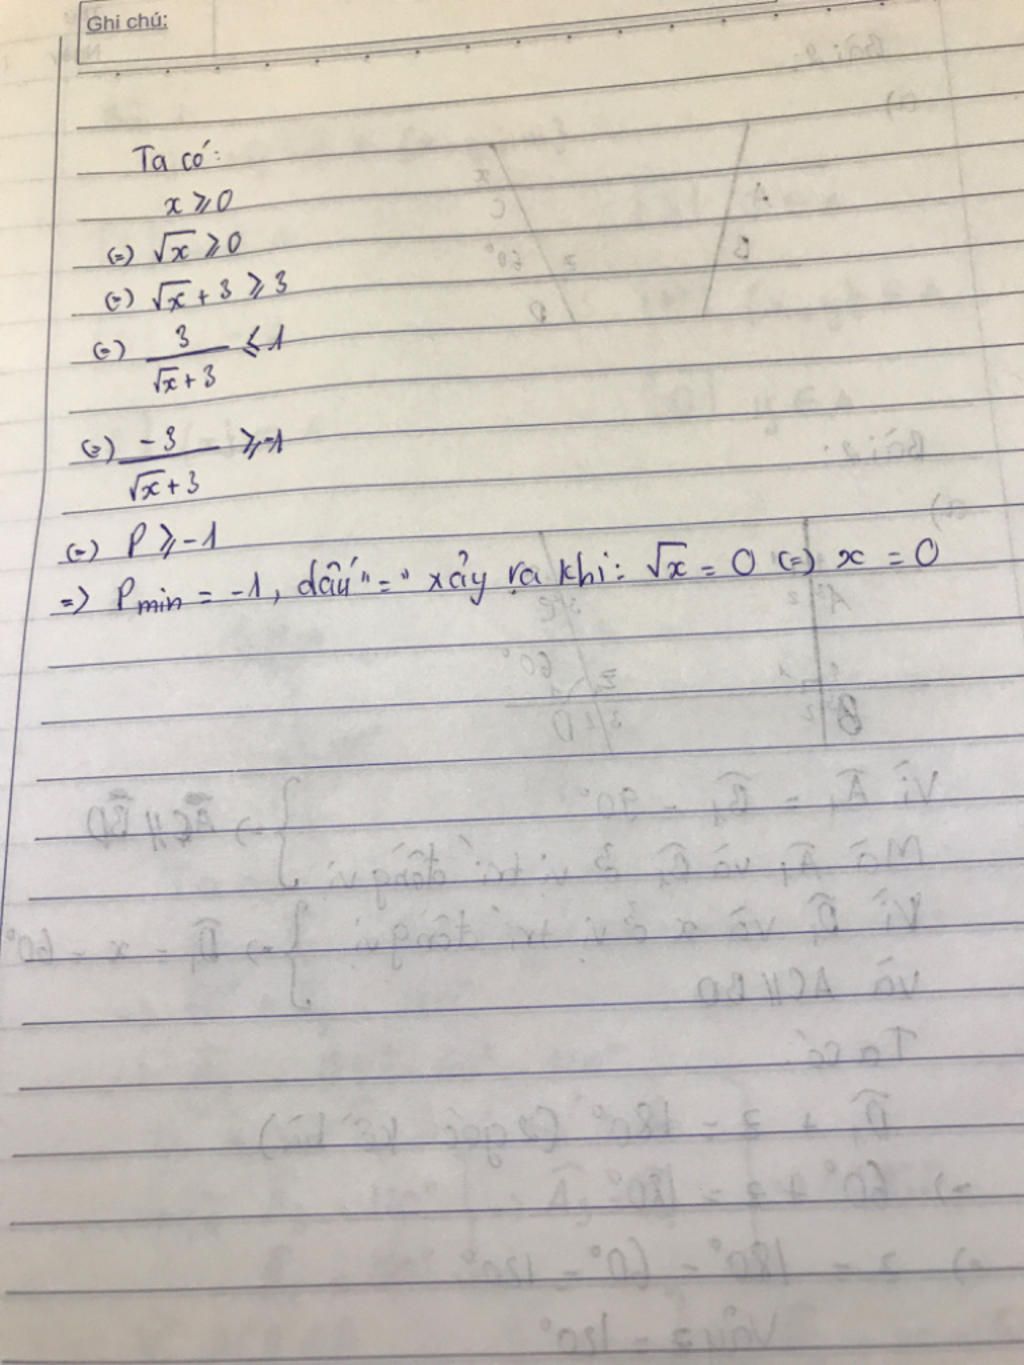 Ghi chú:
Ta có:
x ⩾ 0
(=) √x ⩾ 0
(=) √x + 3 ⩾ 3
(=) 3/(√x + 3) ⩽ 1
(=) -3/(√x + 3) ⩾ -1
(=) P ⩾ -1
=> Pmin = -1, dấu "=" xảy ra khi: √x = 0 (=) x = 0